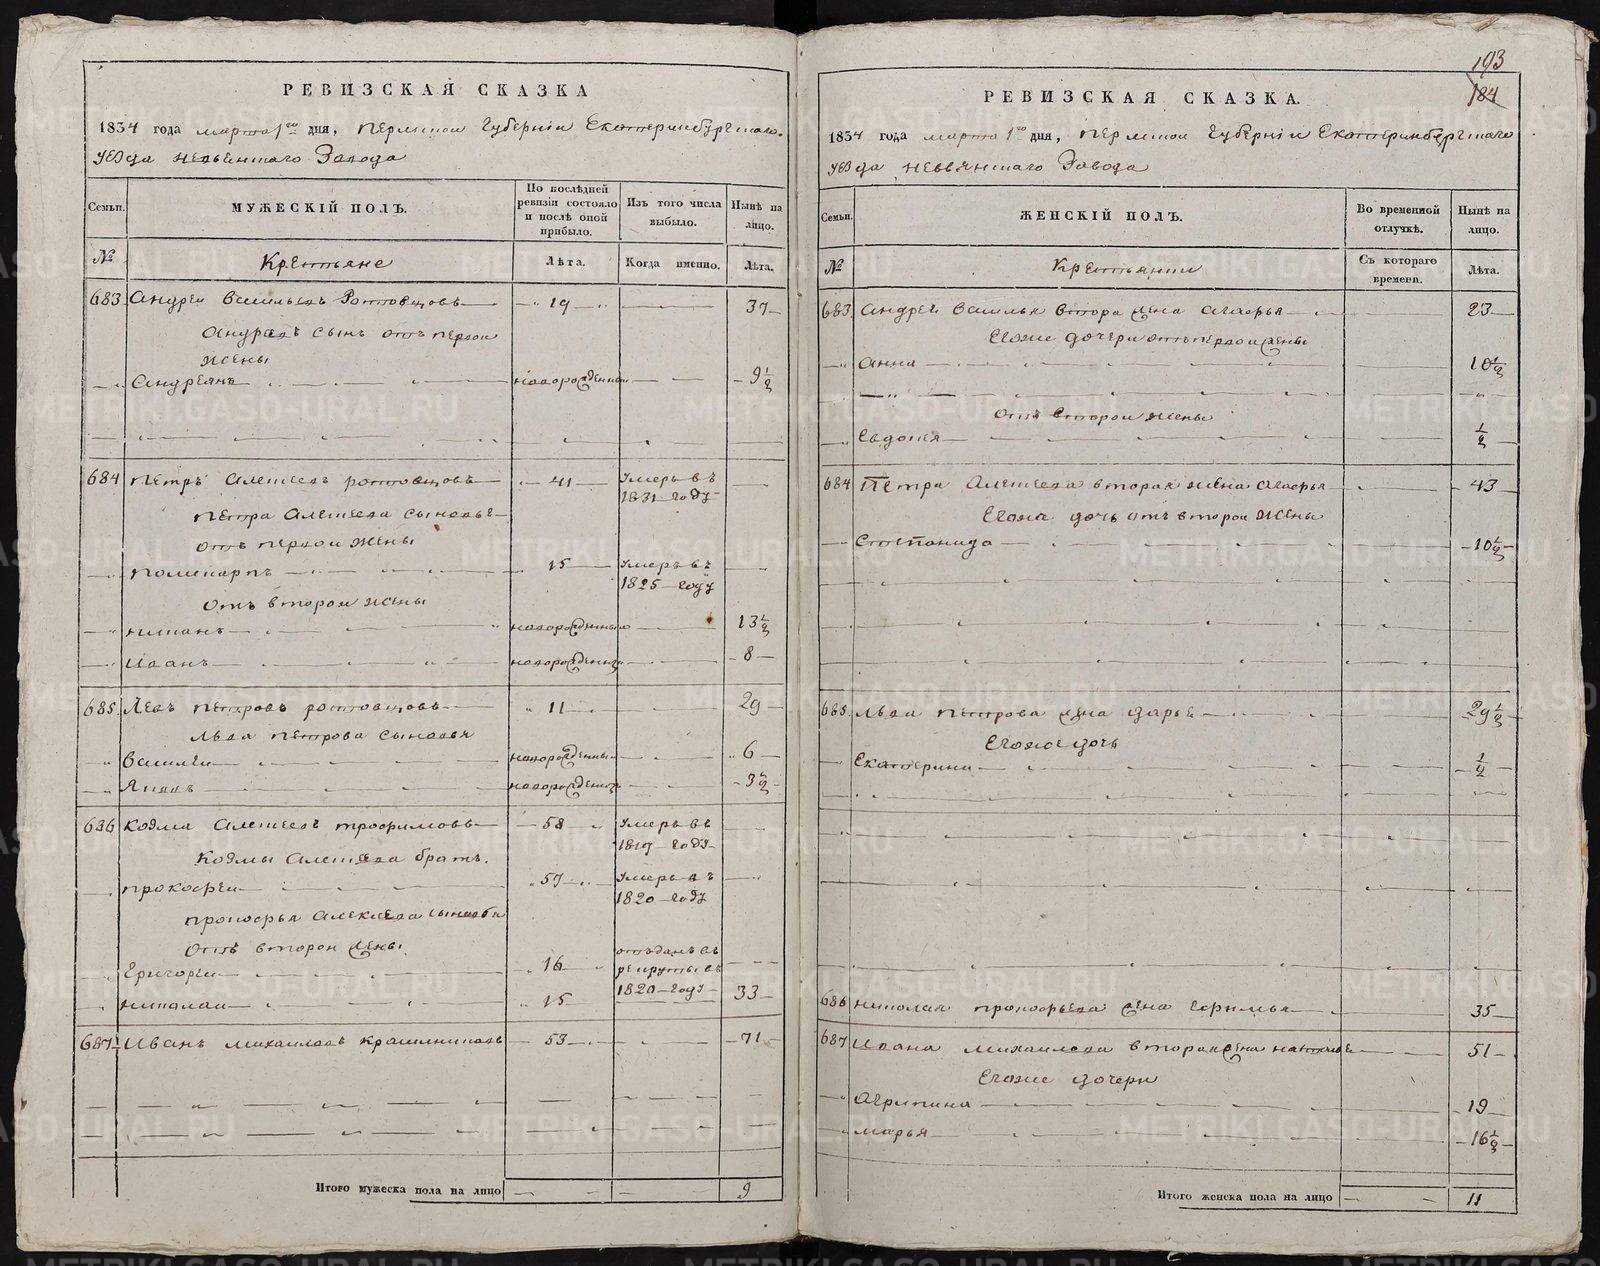 РЕВИЗСКАЯ СКАЗКА
1834 года марта 1го дня, Пермской Губернiи Екатеринбургскаго
уезда невьянскаго Завода
Семьи.
МУЖЕСКIЙ ПОЛЪ.
По послѣдней ревизiи состояло и послѣ оной прибыло.
Изъ того числа выбыло.
Нынѣ на лицо.
№
Крестьяне
Лѣта.
Когда именно.
Лѣта.
683 Андреи Васильевъ Ростовцовъ 19 37
Андреевъ сынъ отъ первои
жены
Андреянъ новорожденныи 9½
684 Петръ Алексеевъ ростовцовъ 41 умеръ въ 1831 году
Петра Алексеева сыновье
отъ первои жены
Поликарпъ 15 умеръ въ 1825 году
Отъ второи жены
никанъ новорожденныи 13½
Иванъ новорожденныи 8
685 Левъ Петровъ ростовцовъ 11 29
Льва Петрова сыновья
Василеи новорожденныи 6
Яковъ новорожденныи 3½
686 Козма Алексеевъ трофимовъ 58 умеръ въ 1819 году
Козмы Алексеева братъ
прокофеи 57 умеръ въ 1820 году
прокофья Алексеева сыновьи
Отъ второи жены
Григореи 16 отъданъ въ рекруты въ 1820 году
николаи 15 33
687 Иванъ михаиловъ крашениниковъ 53 71
Итого мужеска пола на лицо 9
193
184
РЕВИЗСКАЯ СКАЗКА.
1834 года марта 1го дня, пермскои Губернiи Екатеринбургскаго
уезда невьянскаго Завода
Семьи.
ЖЕНСКIЙ ПОЛЪ.
Во временной отлучкѣ.
Нынѣ на лицо.
№
Крестьянки
Съ котораго времени.
Лѣта.
683 Андрея Василья втора жена Агафья 23
Егоже дочери отъ первои жены
Анна 10½
отъ второи жены
Евдокия ½
684 Петра Алексеева вторая жена Агафья 43
Егоже дочь отъ второи жены
Степанида 10½
685 Льва Петрова жена дарья 29½
Егоже дочь
Екатерина ½
686 николая прокофьева жена 35
687 Ивана михаилова вторая жена 51
Егоже дочери
Агрипина 19
марья 16½
Итого женска пола на лицо 11
METRIKI.GASO-URAL.RU